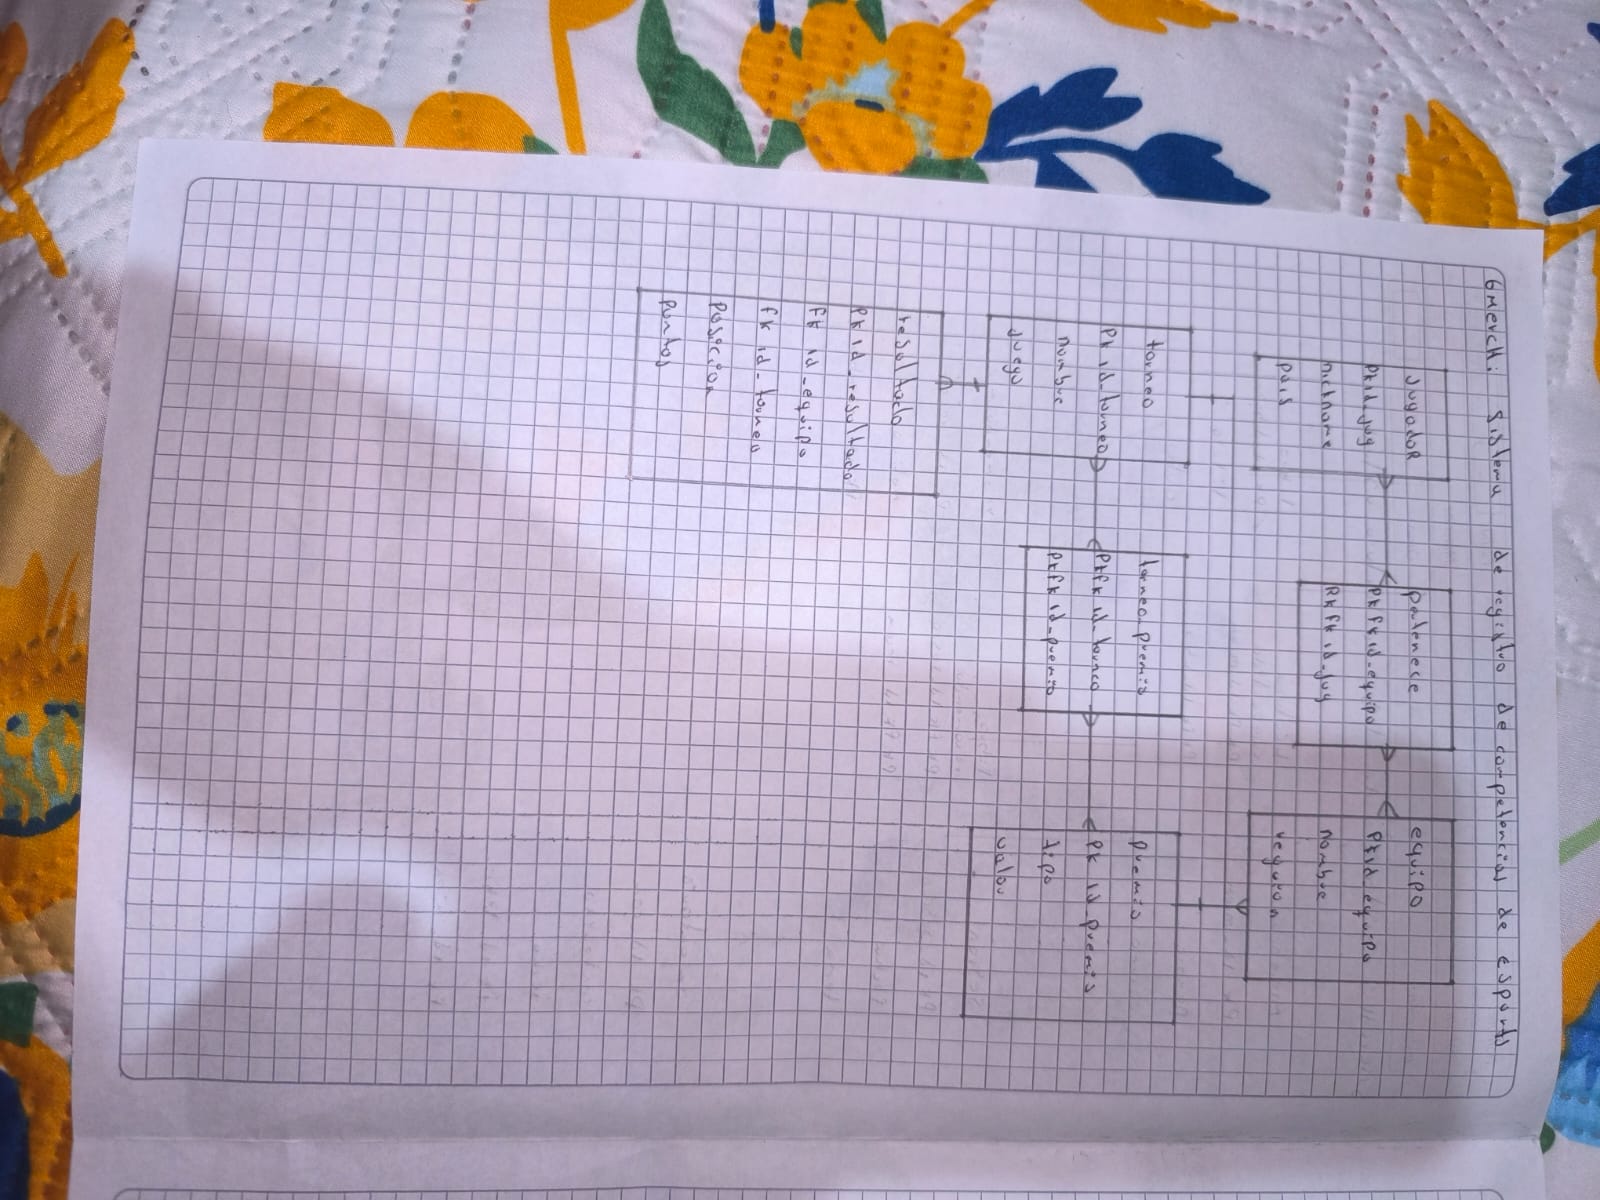 GMerch: Sistema de registro de competencias de esports
Jugador
Pk id_jug
nickname
pais
pertenece
Pk fk id_equipo
Pk fk id_jug
equipo
Pk id_equipo
nombre
region
torneo
Pk id_torneo
nombre
juego
torneo_premio
Pk fk id_torneo
Pk fk id_premio
premio
Pk id_premios
tipo
valor
resultado
Pk id_resultado
fk id_equipo
fk id_torneo
Posicion
Puntos